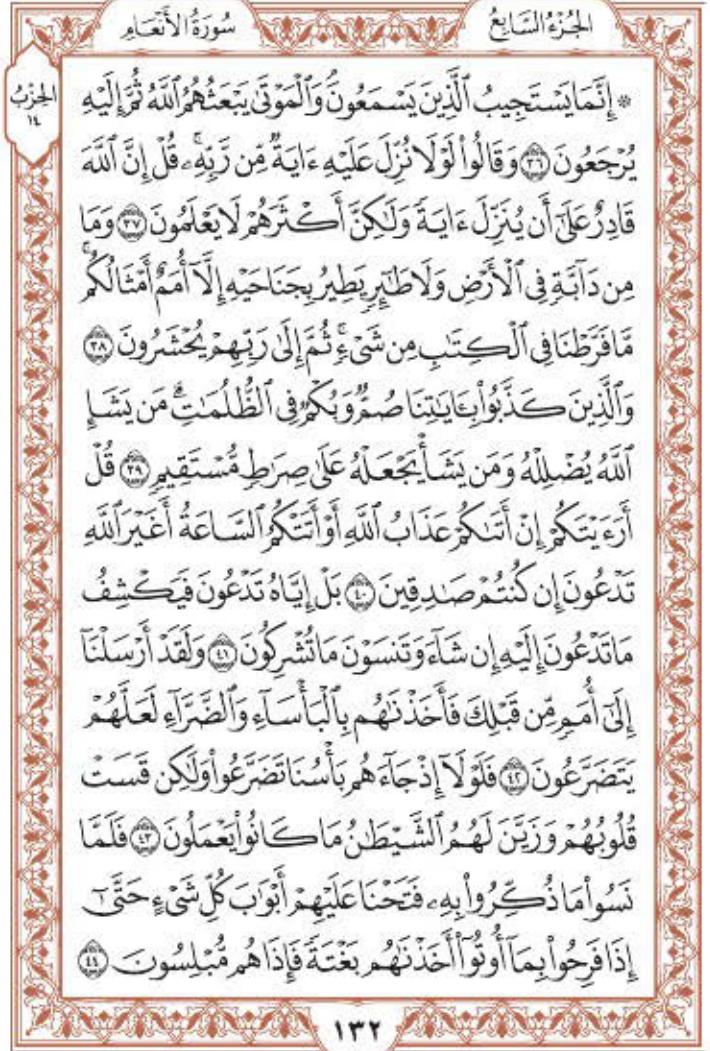 الجُزْءُ السَّابِعُ سُورَةُ الأَنْعَامِ
الحِزْبُ
١٤
۞ إِنَّمَا يَسْتَجِيبُ ٱلَّذِينَ يَسْمَعُونَۘ وَٱلْمَوْتَىٰ يَبْعَثُهُمُ ٱللَّهُ ثُمَّ إِلَيْهِ
يُرْجَعُونَ ٣٦ وَقَالُوا۟ لَوْلَا نُزِّلَ عَلَيْهِ ءَايَةٌ مِّن رَّبِّهِۦۚ قُلْ إِنَّ ٱللَّهَ
قَادِرٌ عَلَىٰٓ أَن يُنَزِّلَ ءَايَةً وَلَٰكِنَّ أَكْثَرَهُمْ لَا يَعْلَمُونَ ٣٧ وَمَا
مِن دَآبَّةٍ فِى ٱلْأَرْضِ وَلَا طَٰٓئِرٍ يَطِيرُ بِجَنَاحَيْهِ إِلَّآ أُمَمٌ أَمْثَالُكُمۚ
مَّا فَرَّطْنَا فِى ٱلْكِتَٰبِ مِن شَىْءٍۚ ثُمَّ إِلَىٰ رَبِّهِمْ يُحْشَرُونَ ٣٨
وَٱلَّذِينَ كَذَّبُوا۟ بِـَٔايَٰتِنَا صُمٌّ وَبُكْمٌ فِى ٱلظُّلُمَٰتِۗ مَن يَشَإِ
ٱللَّهُ يُضْلِلْهُ وَمَن يَشَأْ يَجْعَلْهُ عَلَىٰ صِرَٰطٍ مُّسْتَقِيمٍ ٣٩ قُلْ
أَرَءَيْتَكُمْ إِنْ أَتَىٰكُمْ عَذَابُ ٱللَّهِ أَوْ أَتَتْكُمُ ٱلسَّاعَةُ أَغَيْرَ ٱللَّهِ
تَدْعُونَ إِن كُنتُمْ صَٰدِقِينَ ٤٠ بَلْ إِيَّاهُ تَدْعُونَ فَيَكْشِفُ
مَا تَدْعُونَ إِلَيْهِ إِن شَآءَ وَتَنسَوْنَ مَا تُشْرِكُونَ ٤١ وَلَقَدْ أَرْسَلْنَآ
إِلَىٰٓ أُمَمٍ مِّن قَبْلِكَ فَأَخَذْنَٰهُم بِٱلْبَأْسَآءِ وَٱلضَّرَّآءِ لَعَلَّهُمْ
يَتَضَرَّعُونَ ٤٢ فَلَوْلَآ إِذْ جَآءَهُم بَأْسُنَا تَضَرَّعُوا۟ وَلَٰكِن قَسَتْ
قُلُوبُهُمْ وَزَيَّنَ لَهُمُ ٱلشَّيْطَٰنُ مَا كَانُوا۟ يَعْمَلُونَ ٤٣ فَلَمَّا
نَسُوا۟ مَا ذُكِّرُوا۟ بِهِۦ فَتَحْنَا عَلَيْهِمْ أَبْوَٰبَ كُلِّ شَىْءٍ حَتَّىٰٓ
إِذَا فَرِحُوا۟ بِمَآ أُوتُوٓا۟ أَخَذْنَٰهُم بَغْتَةً فَإِذَا هُم مُّبْلِسُونَ ٤٤
١٣٢